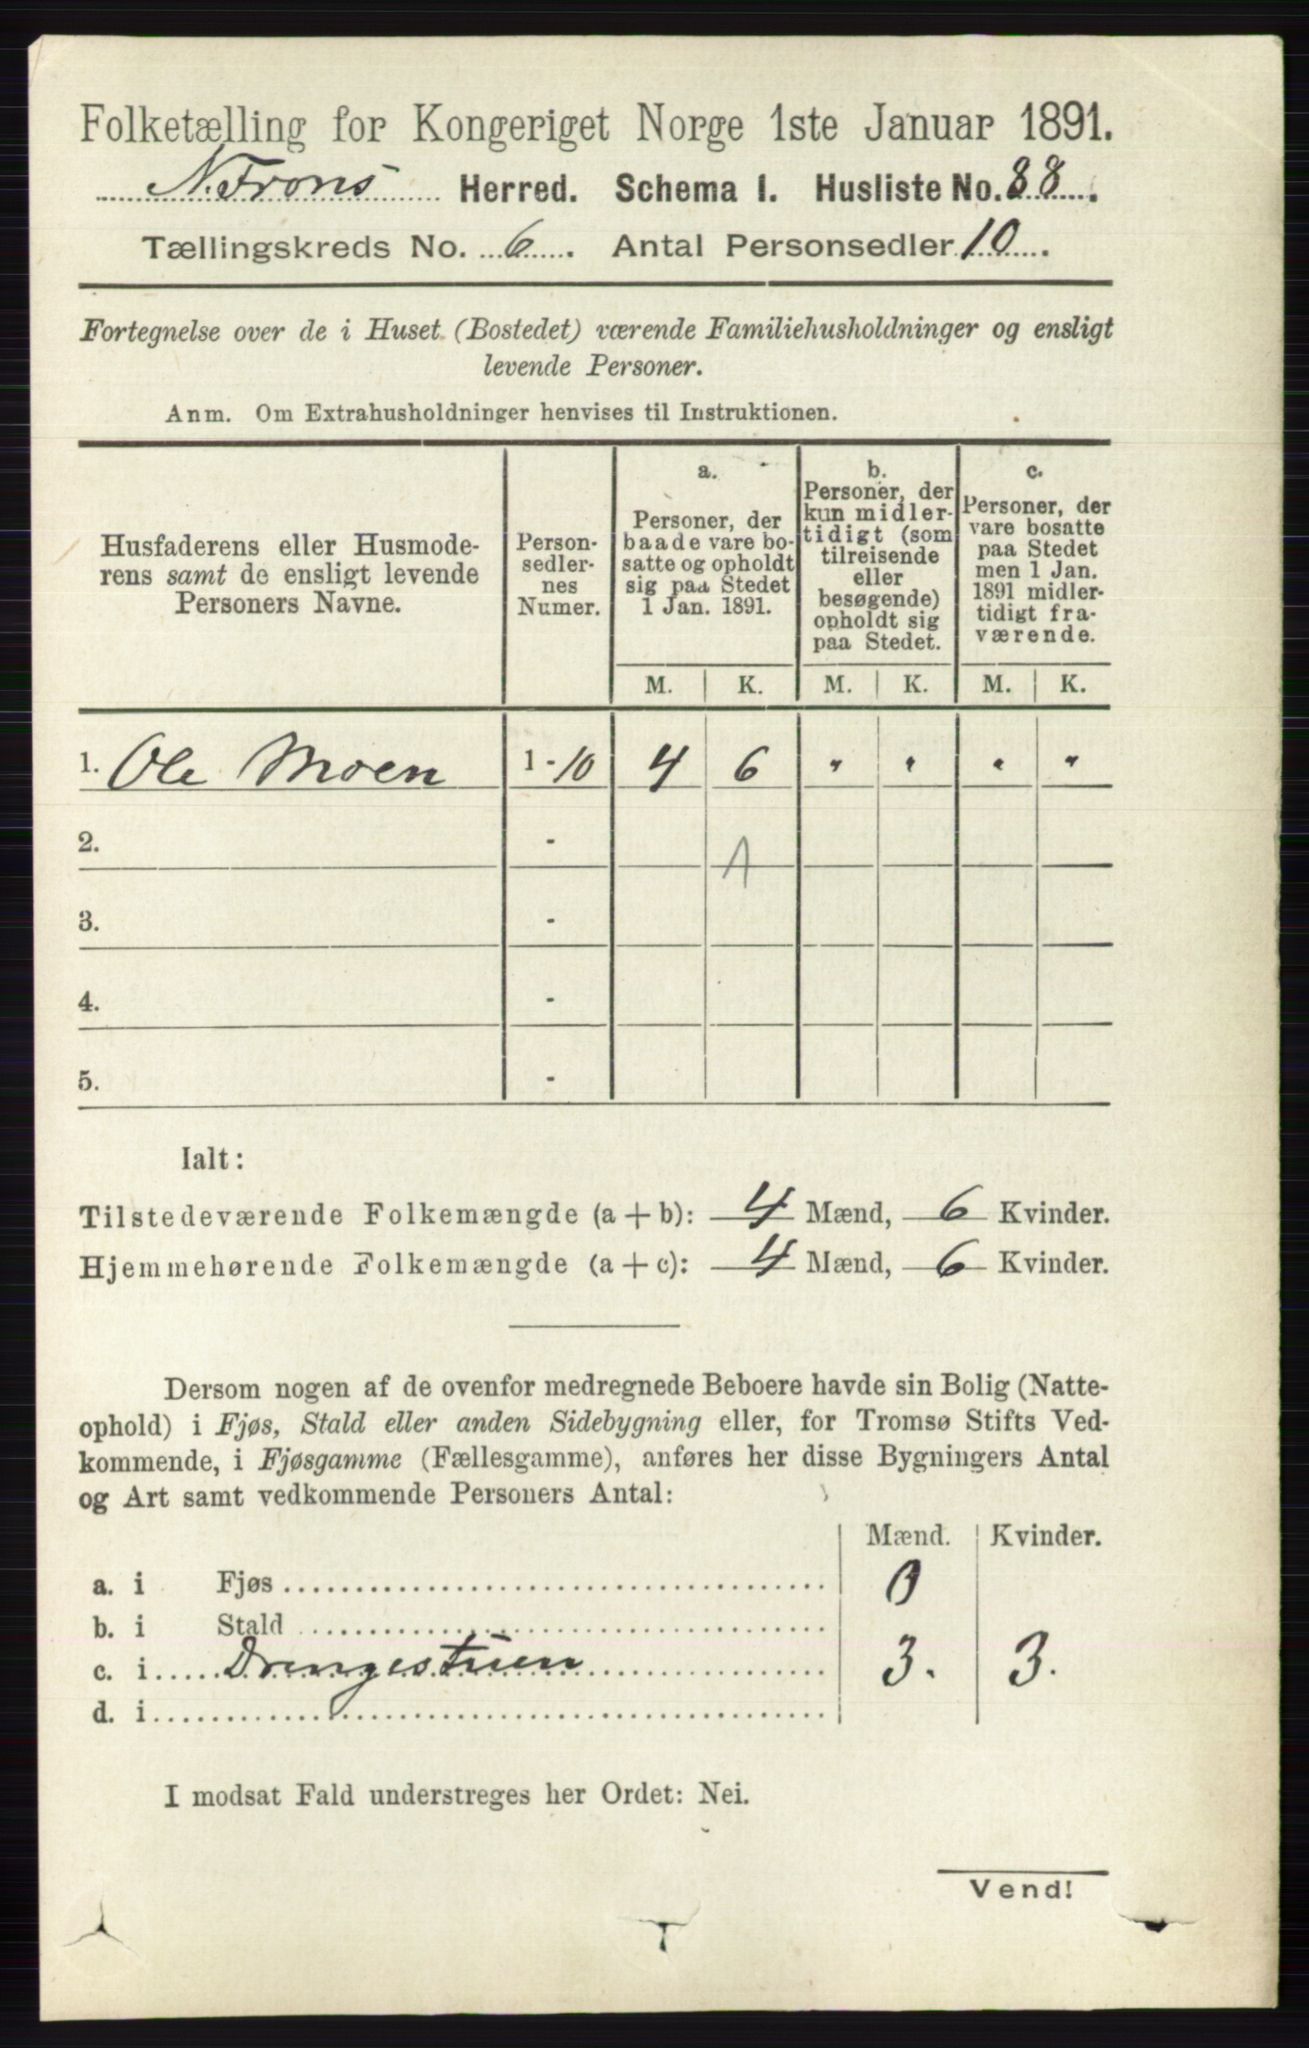 Folketælling for Kongeriget Norge 1ste Januar 1891.
N. Frons Herred. Schema 1. Husliste No. 88.
Tællingskreds No. 6. Antal Personsedler 10.
Fortegnelse over de i Huset (Bostedet) værende Familiehusholdninger og ensligt
levende Personer.
Anm. Om Extrahusholdninger henvises til Instruktionen.
Husfaderens eller Husmode-
rens samt de ensligt levende
Personers Navne.
Person-
sedler-
nes
Numer.
a.
Personer, der
baade vare bo-
satte og opholdt
sig paa Stedet
1 Jan. 1891.
b.
Personer, der
kun midler-
tidigt (som
tilreisende
eller
besøgende)
opholdt sig
paa Stedet.
c.
Personer, der
vare bosatte
paa Stedet
men 1 Jan.
1891 midler-
tidigt fra-
værende.
M. K. M. K. M. K.
1. Ole Moen 1 - 10 4 6 " " " "
2. -
3. -
4. -
5. -
Ialt:
Tilstedeværende Folkemængde (a + b): 4 Mænd, 6 Kvinder.
Hjemmehørende Folkemængde (a + c): 4 Mænd, 6 Kvinder.
Dersom nogen af de ovenfor medregnede Beboere havde sin Bolig (Natte-
ophold) i Fjøs, Stald eller anden Sidebygning eller, for Tromsø Stifts Ved-
kommende, i Fjøsgamme (Fællesgamme), anføres her disse Bygningers Antal
og Art samt vedkommende Personers Antal:
Mænd. Kvinder.
a. i Fjøs 0
b. i Stald
c. i Drengestuen 3. 3.
d. i
I modsat Fald understreges her Ordet: Nei.
Vend!